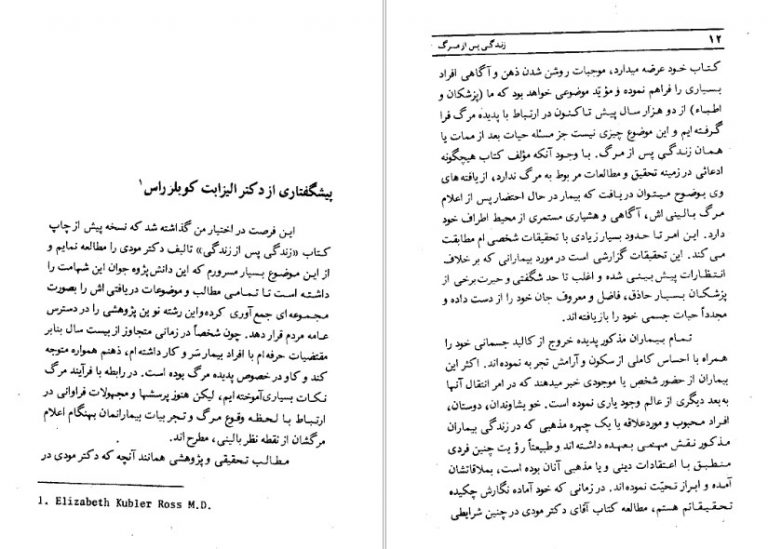 پیشگفتاری از دکتر الیزابت کوبلر راس¹
این فرصت در اختیار من گذاشته شد که نسخه پیش از چاپ
کتاب «زندگی پس از زندگی» تالیف دکتر مودی را مطالعه نمایم و
از این موضوع بسیار مسرورم که این دانش پژوه جوان این شهامت را
داشته است تا تمامی مطالب و موضوعات دریافتی اش را بصورت
مجموعه ای جمع آوری کرده و این رشته نوین پژوهشی را در دسترس
عامه مردم قرار دهد. چون شخصاً در زمانی متجاوز از بیست سال بنابر
مقتضیات حرفه ام با افراد بیمار سَر و کار داشته ام، ذهنم همواره متوجه
کند و کاو در خصوص پدیده مرگ بوده است. در رابطه با فرآیند مرگ
نکات بسیاری آموخته ایم، لیکن هنوز پرسشها و مجهولات فراوانی در
ارتباط با لحظه وقوع مرگ و تجربیات بیمارانمان بهنگام اعلام
مرگشان از نقطه نظر بالینی، مطرح اند.
مطالب تحقیقی و پژوهشی همانند آنچه که دکتر مودی در
1. Elizabeth Kubler Ross M.D.
۱۲ زندگی پس از مرگ
کتاب خود عرضه میدارد، موجبات روشن شدن ذهن و آگاهی افراد
بسیاری را فراهم نموده و مؤیّد موضوعی خواهد بود که ما (پزشکان و
اطباء) از دو هزار سال پیش تاکنون در ارتباط با پدیده مرگ فرا
گرفته ایم و این موضوع چیزی نیست جز مسئله حیات بعد از ممات یا
همان زندگی پس از مرگ. با وجود آنکه مؤلف کتاب هیچگونه
ادعائی در زمینه تحقیق و مطالعات مربوط به مرگ ندارد، از یافته های
وی بوضوح میتوان دریافت که بیمار در حال احتضار پس از اعلام
مرگ بالینی اش، آگاهی و هشیاری مستمری از محیط اطراف خود
دارد. این امر تا حدود بسیار زیادی با تحقیقات شخصی ام مطابقت
می کند. این تحقیقات گزارشی است در مورد بیمارانی که بر خلاف
انتظارات پیش بینی شده و اغلب تا حد شگفتی و حیرت برخی از
پزشکان بسیار حاذق، فاضل و معروف جان خود را از دست داده و
مجدداً حیات جسمی خود را بازیافته اند.
تمام بیماران مذکور پدیده خروج از کالبد جسمانی خود را
همراه با احساس کاملی از سکون و آرامش تجربه نموده اند. اکثر این
بیماران از حضور شخص یا موجودی خبر میدهند که در امر انتقال آنها
به بعد دیگری از عالم وجود یاری نموده است. خویشاوندان، دوستان،
افراد محبوب و مورد علاقه یا یک چهره مذهبی که در زندگی بیماران
مذکور نقش مهمی بعهده داشته اند و طبیعتاً رؤیت چنین فردی
منطبق با اعتقادات دینی و یا مذهبی آنان بوده است، بملاقاتشان
آمده و ابراز تحیّت نموده اند. در زمانی که خود آماده نگارش چکیده
تحقیقاتم هستم، مطالعه کتاب آقای دکتر مودی در چنین شرایطی